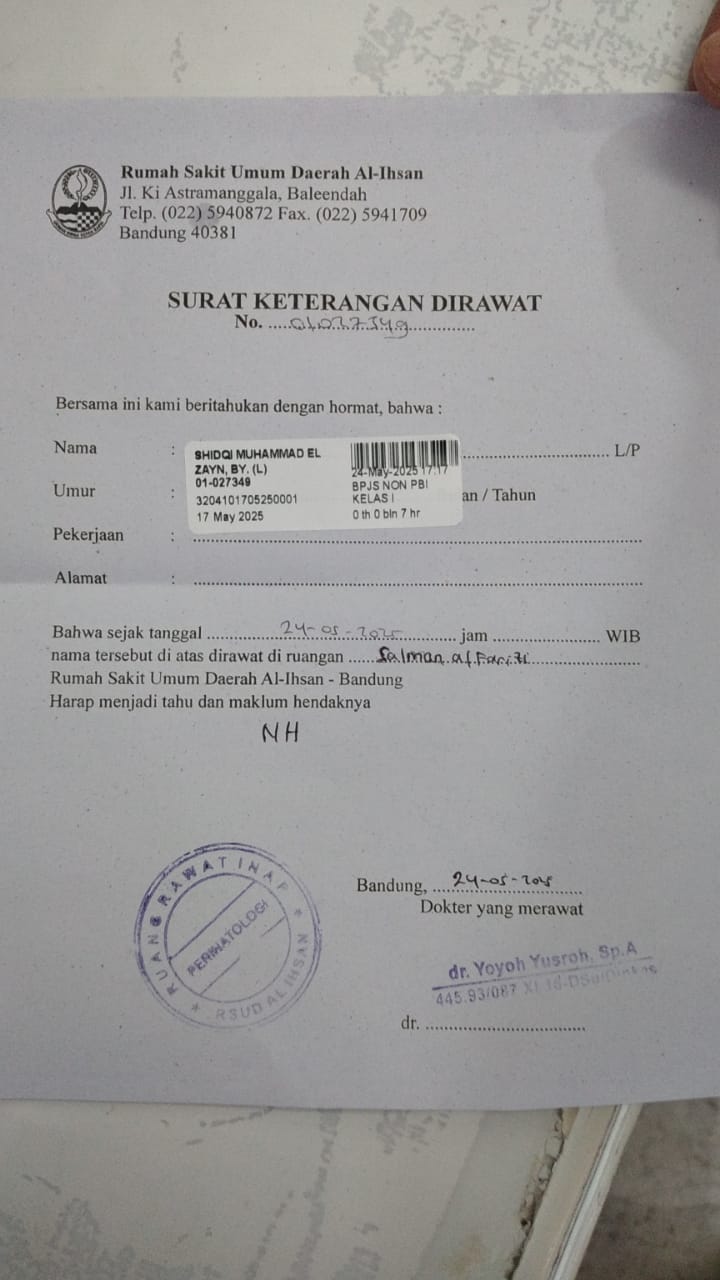 Rumah Sakit Umum Daerah Al-Ihsan
Jl. Ki Astramanggala, Baleendah
Telp. (022) 5940872 Fax. (022) 5941709
Bandung 40381
SURAT KETERANGAN DIRAWAT
No. .....01027349.............
Bersama ini kami beritahukan dengan hormat, bahwa :
Nama : SHIDQI MUHAMMAD EL ZAYN, BY. (L) L/P
01-027349
3204101705250001
17 May 2025
24-May-2025 17:17
BPJS NON PBI
KELAS I
0 th 0 bln 7 hr
Umur : an / Tahun
Pekerjaan :
Alamat :
Bahwa sejak tanggal 24-05-2025 jam WIB
nama tersebut di atas dirawat di ruangan Salman al Farizi
Rumah Sakit Umum Daerah Al-Ihsan - Bandung
Harap menjadi tahu dan maklum hendaknya
NH
RUANG RAWAT INAP
PERINATOLOGI
RSUD AL IHSAN
Bandung, 24-05-2025
Dokter yang merawat
dr. Yoyoh Yusroh, Sp.A
445.93/087
dr.